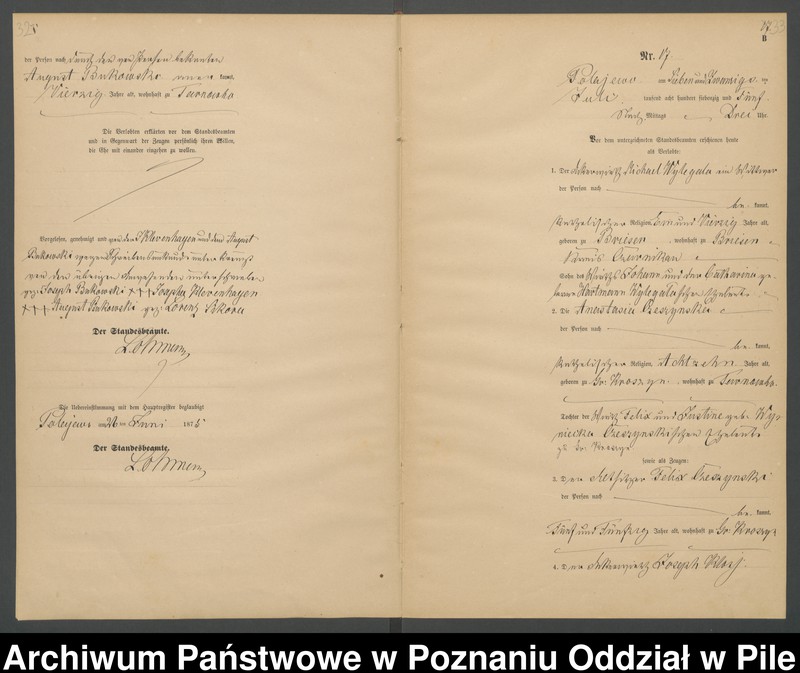 der Person nach durch den von Person bekannten
August Bukowski kannt,
Vierzig Jahre alt, wohnhaft zu Tarnowko
Die Verlobten erklärten vor dem Standesbeamten
und in Gegenwart der Zeugen persönlich ihren Willen,
die Ehe mit einander eingehen zu wollen.
Vorgelesen, genehmigt und von den Klevenhagen und dem August
Bukowski wegen Schreibensunkunde unterkreuzt
von den übrigen Anwesenden unterschrieben
gez. Joseph Bukowski +++ Joseph Klevenhagen
+++ August Bukowski gez. Lorenz Skóra
Der Standesbeamte.
Lohmann
Die Uebereinstimmung mit dem Hauptregister beglaubigt
Polajewo am 26 ten Juni 1875
Der Standesbeamte.
Lohmann
17
B
Nr. 17
Polajewo am Sieben und Zwanzigsten
Juli tausend acht hundert siebenzig und Fünf
Nach Mittags Drei Uhr.
Vor dem unterzeichneten Standesbeamten erschienen heute
als Verlobte:
1. Der Ackerwirth Michael Wylegala ein Wittwer
der Person nach
be kannt,
katholischer Religion, und Vierzig Jahre alt,
geboren zu Briesen, wohnhaft zu Briesen
Kreis Czarnikau
Sohn des Wirths Johann und der Catharina ge
borene Hartmann Wylegalaschen Eheleute
2. Die Anastasia Cieszynska
der Person nach
be kannt,
katholischer Religion, Achtzehn Jahre alt,
geboren zu Gr. Kroszyn, wohnhaft zu Tarnowko
Tochter der Wirth Felix und Justine geb.
Cieszynskischen Eheleute
zu Gr.
sowie als Zeugen:
3. Der Altsitzer Felix Cieszynski
der Person nach
be kannt,
Fünf und Fünfzig Jahre alt, wohnhaft zu Gr.
4. Der Ackerwirth Joseph
Archiwum Państwowe w Poznaniu Oddział w Pile